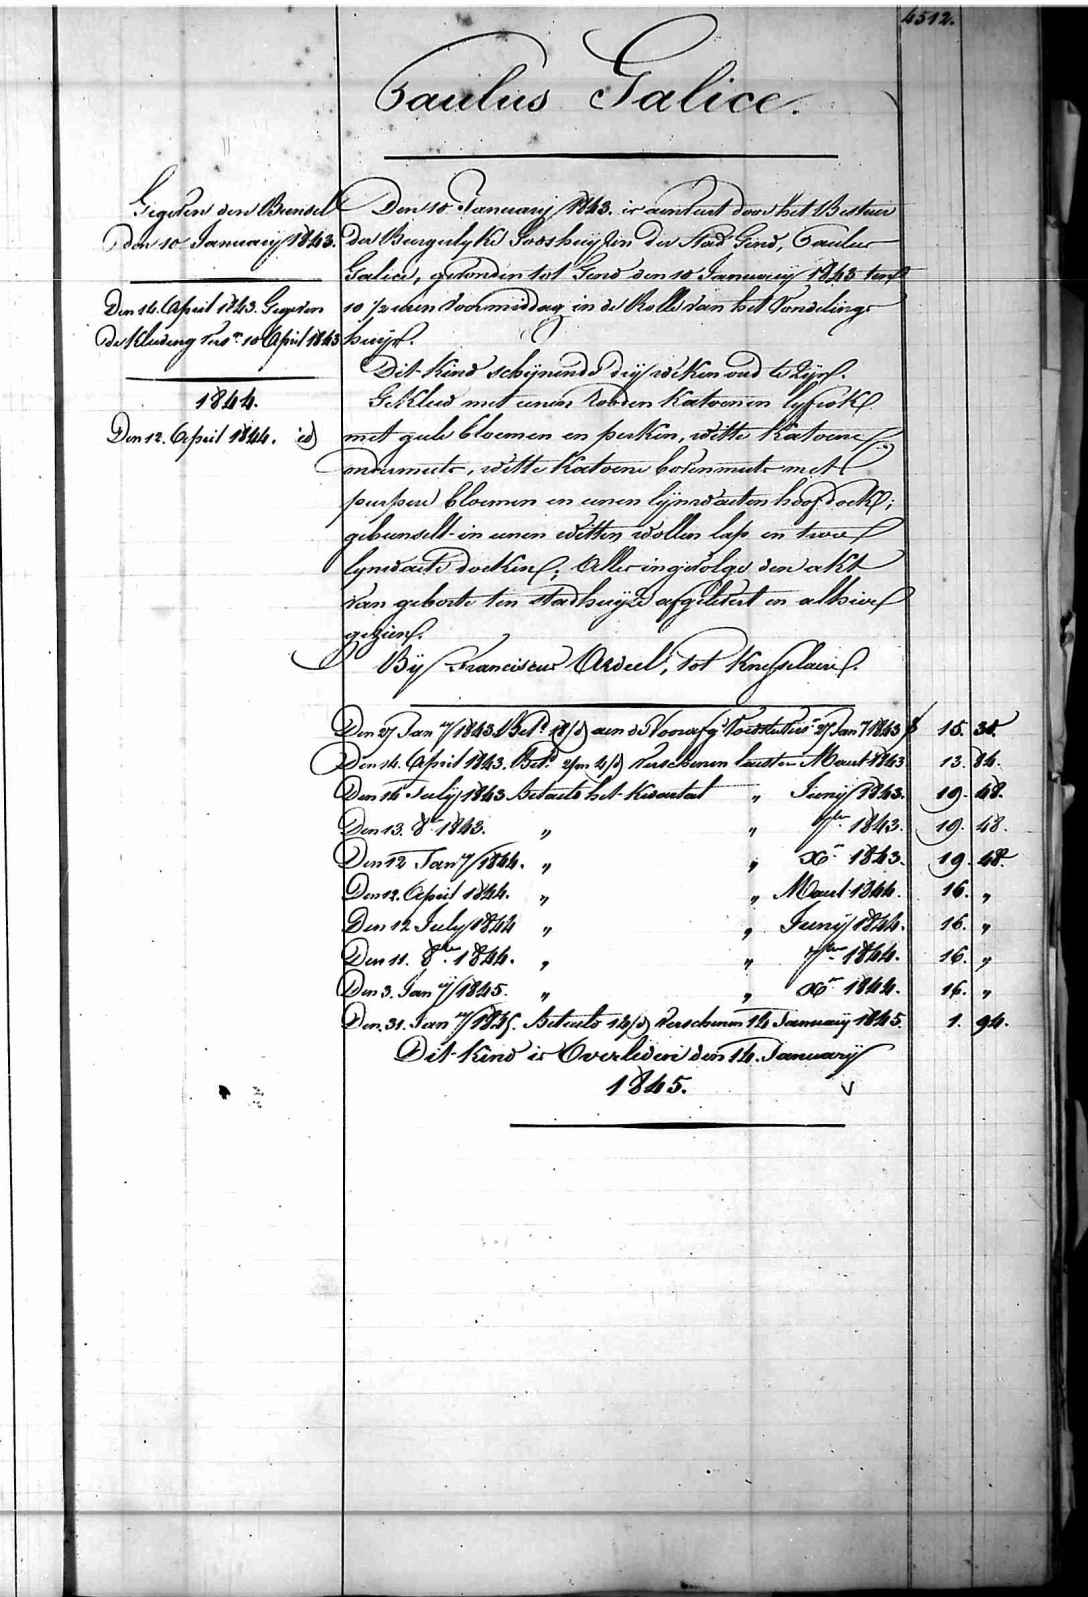 4512.
Paulus Galice.
Gegeven den Bunsel
den 10 January 1843.
Den 14. April 1843. Gegeven
de Kleeding vers.n 10 April 1843
1844.
Den 12. April 1844. id
Den 10 January 1843. is aenveird door het Bestuer
der Burgerlyke Godshuyzen der Stad Gend, Paulus
Galice, gevonden tot Gend den 10 January 1843 ten
10 1/2 uren voormiddag in de Rolle van het Vondelings
huys.
Dit kind schynende dry weken oud te zyn.
Gekleed met eenen rooden katoenen lyfrok
met geele bloemen en perken, witte katoene
mutse, witte katoene bovenmuts met
purpere bloemen en eenen lynwaeten hoofdoek;
gebunselt in eenen witten wollen lap en twee
lynwaete doeken; Alles ingevolge den akt
van geboorte ten stadhuyze afgelevert en alhier
gezien.
By Franciscus Ardeel, tot Knesselaere.
Den 27 Jan.y 1843. Bet.d 18/d aen de Voorafg. Voedster vers.n 27 Jan.y 1843 f 15. 31.
Den 14. April 1843. Bet.d 2/m 4/d verschenen laesten Maert 1843 13. 84.
Den 14 July 1843 Betaeld het Kwartael " Juny 1843. 19. 48.
Den 13. 8.r 1843. " " 7.ber 1843. 19. 48.
Den 12 Jan.y 1844. " " X.r 1843. 19. 48.
Den 12. April 1844. " " Maert 1844. 16. "
Den 12 July 1844 " " Juny 1844. 16. "
Den 11. 8.ber 1844. " " 7.ber 1844. 16. "
Den 3. Jan.y 1845. " " X.r 1844. 16. "
Den 31. Jan.y 1845. Betaeld 14/d verschenen 14 January 1845. 1. 94.
Dit kind is Overleden den 14. January
1845.